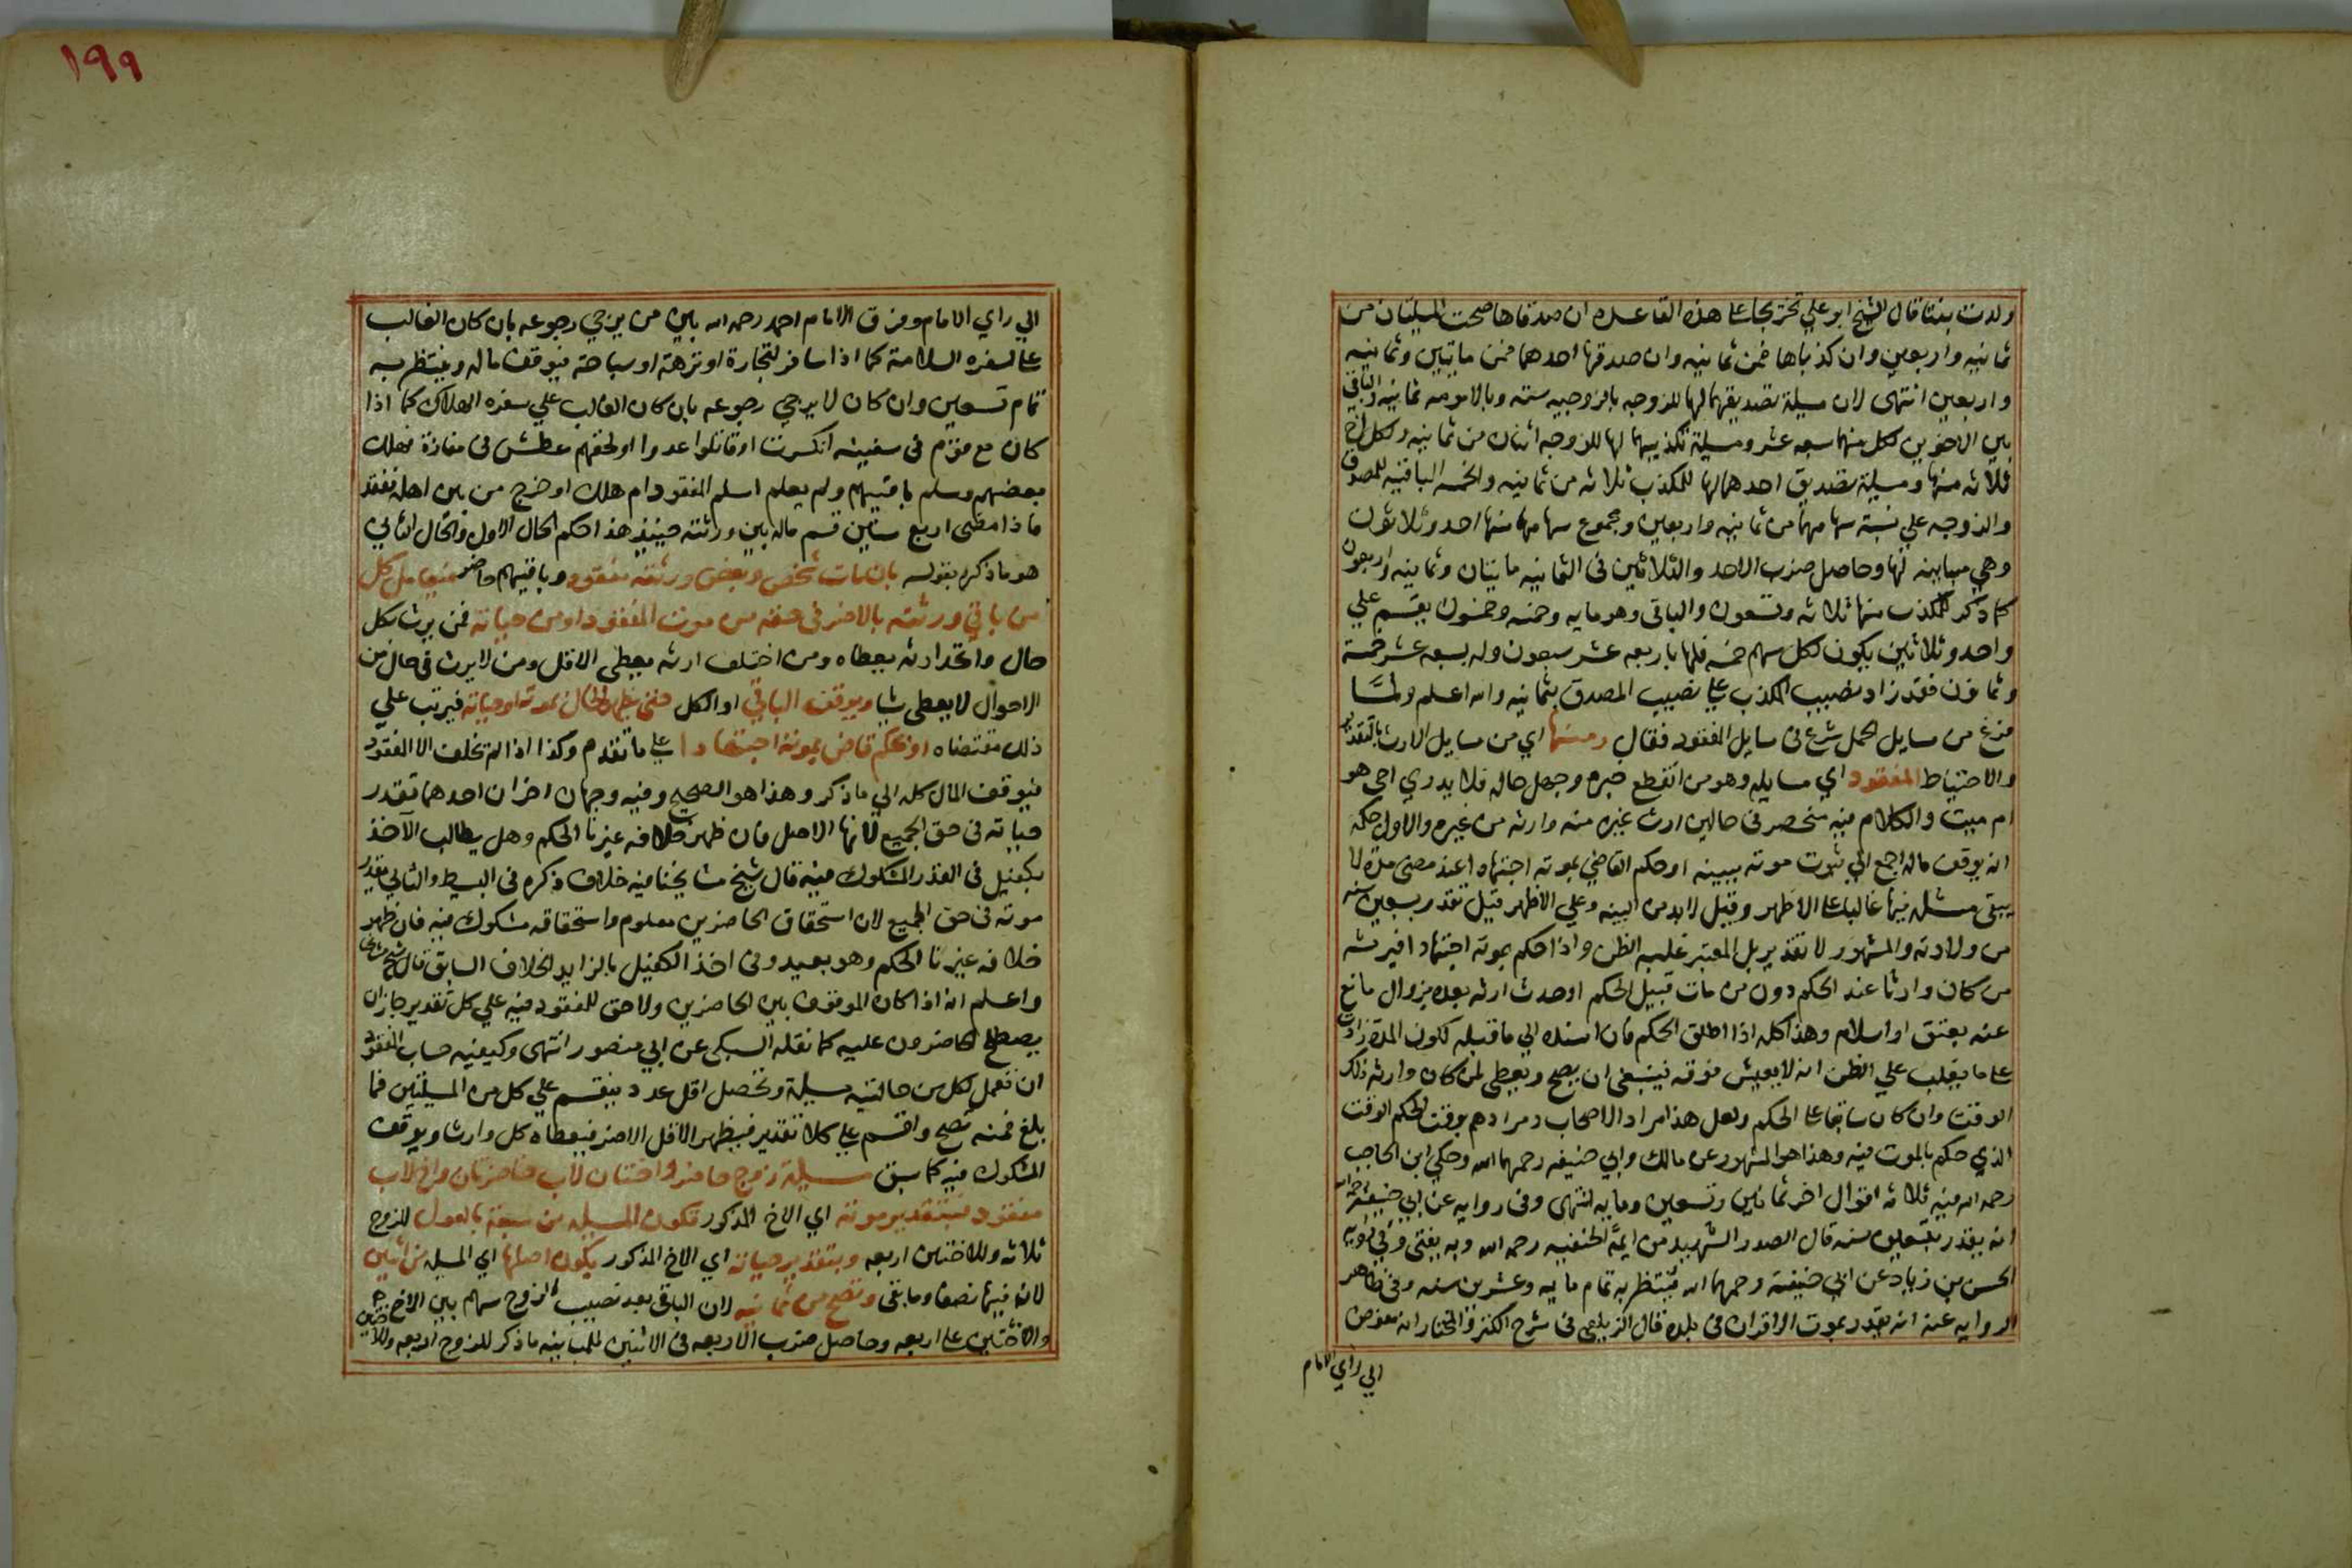 ولدت بنتا قال الشيخ ابو علي تخريجا علي هذه القاعده ان صدقاها صحت المسيلتان من
ثمانيه واربعين وان كذباها فمن ثمانيه وان صدقها احدهما فمن مايتين وثمانيه
واربعين انتهى لان مسيلة تصديقهما لها للزوجه بالزوجيه سته وبالامومه ثمانيه والباقي
بين الاخوين لكل منهما سبعه عشر ومسيلة تكذيبهما لها للزوجه اثنان من ثمانيه ولكل اخ
ثلاثه منها ومسيلة تصديق احدهما لها للمكذب ثلاثه من ثمانيه والخمسه الباقيه للمصدق
والزوجه علي نسبة سهامهما من ثمانيه واربعين ومجموع سهامهما منها احد وثلاثون
وهي مباينه لها وحاصل ضرب الاحد والثلاثين في الثمانيه مايتان وثمانيه واربعون
كما ذكر للمكذب منها ثلاثه وتسعون والباقي وهو مايه وخمسه وخمسون يقسم علي
واحد وثلاثين يكون لكل سهم خمسه فلها باربعه عشر سبعون وله بسبعه عشر خمسة
وثمانون فقد زاد نصيب المكذب علي نصيب المصدق بثمانيه والله اعلم ولمّا
فرغ من مسايل الحمل شرع في مسايل المفقود فقال ومنها اي من مسايل الارث بالتقدير
والاحتياط المفقود اي مسايله وهو من انقطع خبره وجهل حاله فلا يدري احي هو
ام ميت والكلام فيه منحصر في حالين ارث غيره منه وارثه من غيره والاول حكمه
انه يوقف ماله اجمع الي ثبوت موته ببينه او حكم القاضي بموته اجتهادا عند مضي مدة لا
يبقى مثله فيها غالبا علي الاظهر وقيل لا بد من البينه وعلي الاظهر قيل تقدر بسبعين سنه
من ولادته والمشهور لا تقدير بل المعتبر غلبه الظن واذا حكم بموته اجتهادا فيرثه
من كان وارثا عند الحكم دون من مات قبيل الحكم او حدث ارثه بعده بزوال مانع
عنه بعتق او اسلام وهذا كله اذا اطلق الحكم فان اسنده الي ما قبله لكون المدة زادت
علي ما يغلب علي الظن انه لا يعيش فوقه فينبغي ان يصح ويعطى لمن كان وارثه ذلك
الوقت وان كان سابقا علي الحكم ولعل هذا مراد الاصحاب ومرادهم بوقت الحكم الوقت
الذي حكم بالموت فيه وهذا هو المشهور عن مالك وابي حنيفه رحمهما الله وحكي ابن الحاجب
رحمه الله فيه ثلاثه اقوال اخر ثمانين وتسعين ومايه انتهى وفي روايه عن ابي حنيفه رحمه الله
انه يقدر بتسعين سنه قال الصدر الشهيد من ايمة الحنفيه رحمه الله وبه يفتى وفي روايه
الحسن بن زياد عن ابي حنيفة رحمهما الله ينتظر به تمام مايه وعشرين سنه وفي ظاهر
الروايه عنه انه يقدر بموت الاقران في بلده قال الزيلعي في شرح الكنز والمختار انه مفوض
الي راي الامام
١٩٩
الي راي الامام وفرق الامام احمد رحمه الله بين من يرجي رجوعه بان كان الغالب
علي سفره السلامة كما اذا سافر لتجارة او نزهة او سياحة فيوقف ماله وينتظر به
تمام تسعين وان كان لا يرجي رجوعه بان كان الغالب علي سفره الهلاك كما اذا
كان مع قوم في سفينه انكسرت او قاتلوا عدوا او لحقهم عطش في مفازة فهلك
بعضهم وسلم باقيهم ولم يعلم اسلم المفقود ام هلك او خرج من بين اهله ففقد
فاذا مضى اربع سنين قسم ماله بين ورثته حينيذ هذا حكم الحال الاول والحال الثاني
هو ما ذكره بقوله بان مات شخص وبعض ورثته مفقود وباقيهم حاضر فيعامل كل
من باقي ورثته بالاضر في حقه من موت المفقود او من حياته فمن يرث بكل
حال واتحد ارثه يعطاه ومن اختلف ارثه يعطى الاقل ومن لا يرث في حال من
الاحوال لا يعطى شيا ويوقف الباقي او الكل حتى يظهر الحال بموته او حياته فيرتب علي
ذلك مقتضاه او يحكم قاض بموته اجتهادا علي ما تقدم وكذا اذا لم يخلف الا المفقود
فيوقف المال كله الي ما ذكر وهذا هو الصحيح وفيه وجهان اخران احدهما تقدر
حياته في حق الجميع لانها الاصل فان ظهر خلافه غيرنا الحكم وهل يطالب الآخذ
بكفيل في القدر المشكوك فيه قال شيخ مشايخنا فيه خلاف ذكره في البسيط والثاني يقدر
موته في حق الجميع لان استحقاق الحاضرين معلوم واستحقاقه مشكوك فيه فان ظهر
خلافه غيرنا الحكم وهو بعيد وفي اخذ الكفيل بالزايد الخلاف السابق قال شيخ مشايخنا
واعلم انه اذا كان الموقوف بين الحاضرين ولا حق للمفقود فيه علي كل تقدير جاز ان
يصطلح الحاضرون عليه كما نقله السبكي عن ابي منصور انتهى وكيفيه حساب المفقود
ان تعمل لكل من حالتيه مسيلة وتحصل اقل عدد ينقسم علي كل من المسيلتين فما
بلغ فمنه تصح واقسم علي كلا تقدير فيظهر الاقل الاضر فيعطاه كل وارث ويوقف
المشكوك فيه كما سبق مسيلة زوج حاضر واختان لاب حاضرتان واخ لاب
مفقود فبتقدير موته اي الاخ المذكور تكون المسيله من سبعة بالعول للزوج
ثلاثه وللاختين اربعه وبتقدير حياته اي الاخ المذكور يكون اصلها اي المسيله من اثنين
لان فيها نصفا وما بقي وتصح من ثمانيه لان الباقي بعد نصيب الزوج سهم بين الاخ
والاختين علي اربعه وحاصل ضرب الاربعه في الاثنين للمباينه ما ذكر للزوج اربعه وللاختين